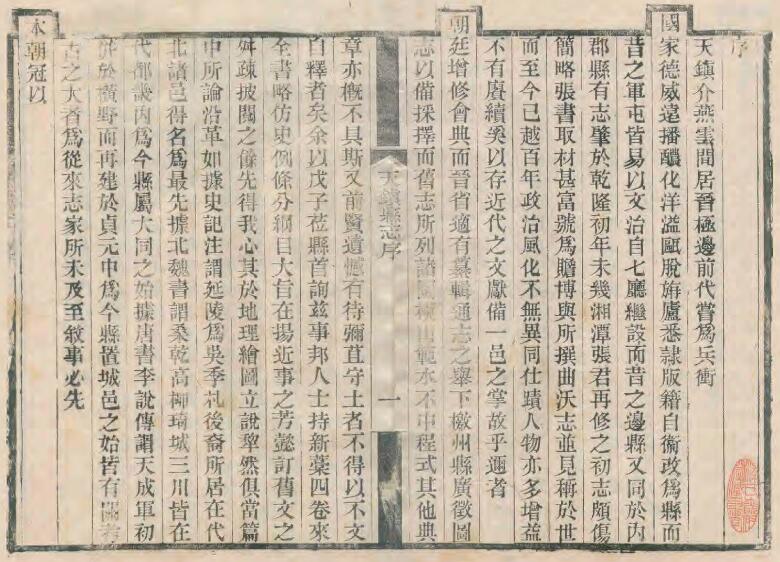 序
天鎮介燕雲間居晉極邊前代嘗爲兵衝
國家德威遠播釀化洋溢甌脫旃廬悉隸版籍自衞改爲縣而
昔之軍屯皆易以文治自七廳繼設而昔之邊縣又同於內
郡縣有志肇於乾隆初年未幾湘潭張君再修之初志頗傷
簡略張書取材甚富號爲贍博與所撰曲沃志並見稱於世
而至今已越百年政治風化不無異同仕蹟人物亦多增益
不有賡續奚以存近代之文獻備一邑之掌故乎邇者
朝廷增修會典而晉省適有纂輯通志之舉下檄州縣廣徵圖
志以備採擇而舊志所列諸圖模山範水不中程式其他典
天鎮縣志序 一
章亦概不具斯又前賢遺憾有待彌苴守土者不得以不文
自釋者矣余以戊子莅縣首詢茲事邦人士持新藁四卷來
全書略仿史例條分綱目大旨在揚近事之芳懿訂舊文之
舛疎披閱之餘先得我心其於地理繪圖立說犂然俱當篇
中所論沿革如據史記注謂延陵爲吳季札後裔所居在代
北諸邑得名爲最先據北魏書謂桑乾高柳琦城三川皆在
代都畿內爲今縣屬大同之始據唐書李說傳謂天成軍初
併於橫野而再建於貞元中爲今縣置城邑之始皆有關考
古之大者爲從來志家所未及至敘事必先
本朝冠以